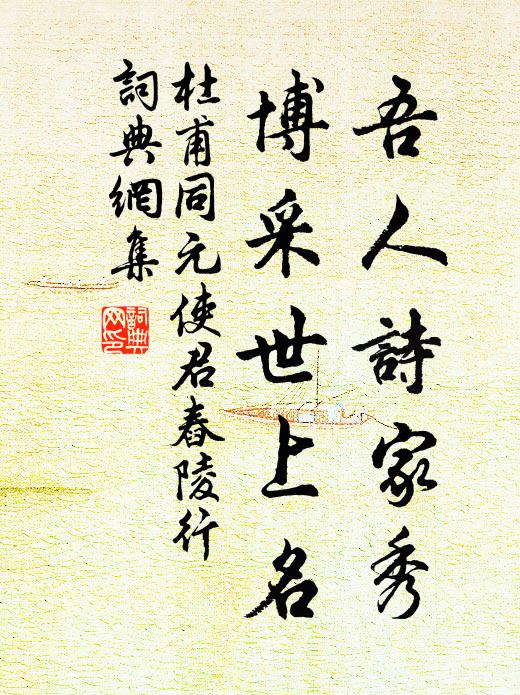 吾人詩家秀
博采世上名
杜甫同元使君舂陵行
詞典網集
詞典网印